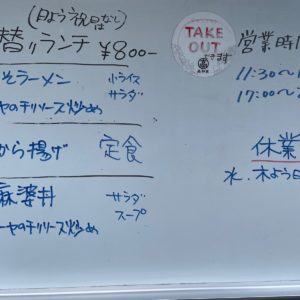 (日よう祝日はなし)
替りランチ ¥800-
そラーメン 小ライス
サラダ
ーヤのチリソース炒め
から揚げ 定食
麻婆丼 サラダ
スープ
ーヤのチリソース炒め
TAKE
OUT
できます
営業時
11:30〜
17:00〜
休業
水、木よう日